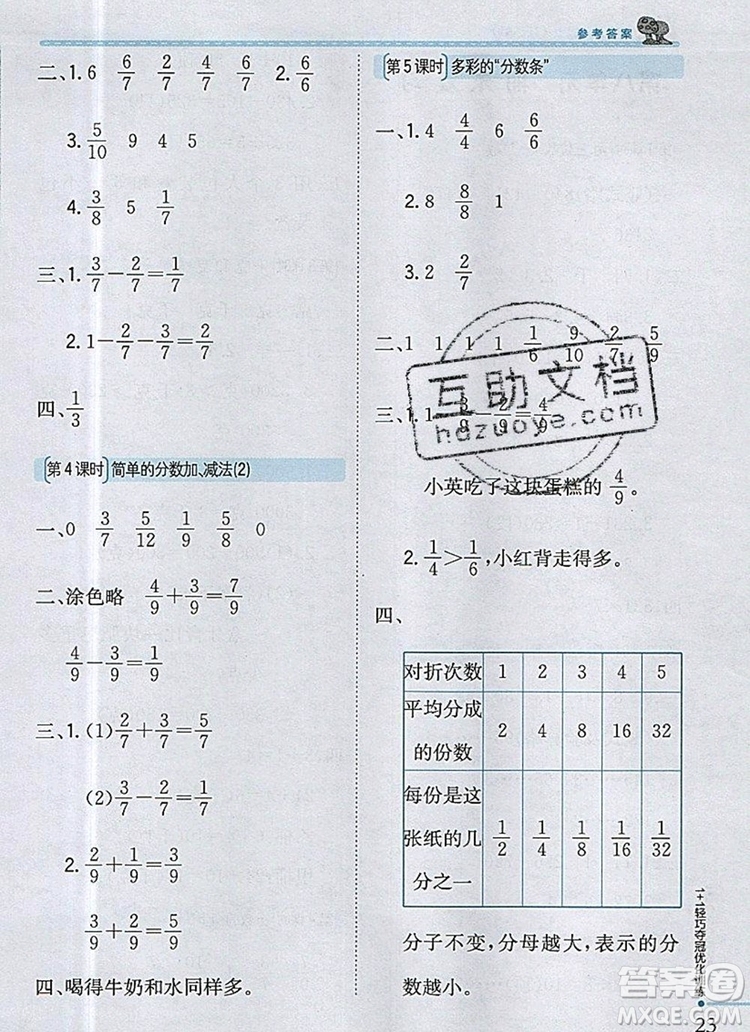 参考答案
二、1. 6 6/7 2/7 4/7 2. 6/6
3. 5/10 9 4 5
4. 3/8 5 1/7
三、1. 3/7-2/7=1/7
2. 1-2/7-3/7=2/7
四、1/3
第4课时 简单的分数加、减法(2)
一、0 3/7 5/12 1/9 5/8 0
二、涂色略 4/9+3/9=7/9
4/9-3/9=1/9
三、1. (1) 2/7+3/7=5/7
(2) 3/7-2/7=1/7
2. 2/9+1/9=3/9
3/9+2/9=5/9
四、喝得牛奶和水同样多。
第5课时 多彩的“分数条”
一、1. 4 4/4 6 6/6
2. 8 8/8 1
3. 2 2/7
二、1 1 1 1/6 9/10 2/7 5/9
三、1. 1-3/9-2/9=4/9
小英吃了这块蛋糕的4/9。
2. 1/4>1/6, 小红背走得多。
四、
对折次数 1 2 3 4 5
平均分成的份数 2 4 8 16 32
每份是这张纸的几分之一 1/2 1/4 1/8 1/16 1/32
分子不变,分母越大,表示的分数越小。
1+1轻巧夺冠优化训练
23
互助文档
hdzuoye.com
答案圈
MXQE.COM